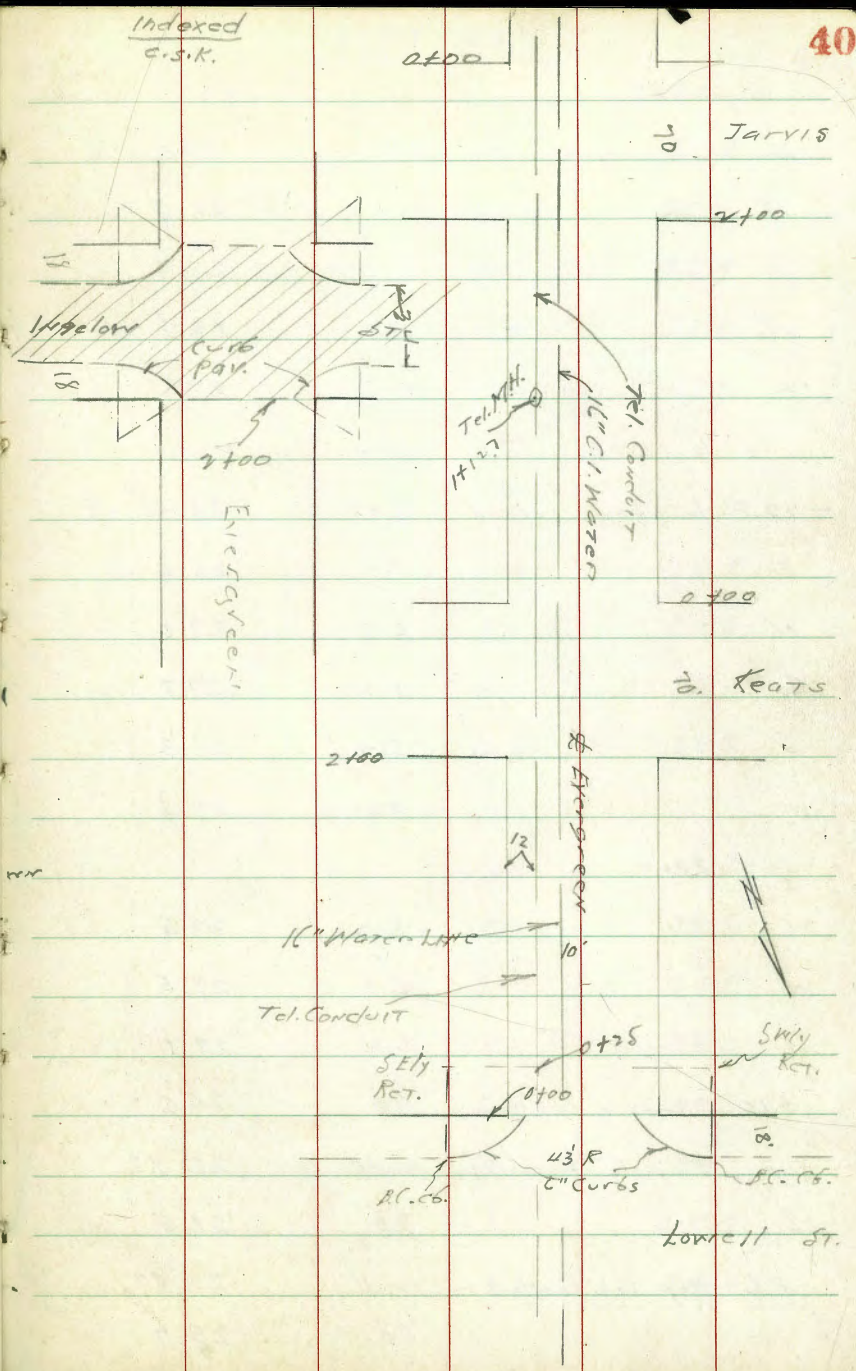 Indexed
C.S.K.
40
0+00
70 Jarvis
2+00
18
Ingelow
ST.
Curb
Pav.
18
2+00
Evergreen
Tel. M.H.
1+12?
16" C.I. Water
Tel. Conduit
0+00
70. Keats
2+00
℄ Evergreen
12
16" Water Line
10'
Tel. Conduit
0+25
SE'ly
Ret.
SW'ly
Ret.
0+00
18'
43' R
6" Curbs
B.C. Cb.
B.C. Cb.
Lowell ST.